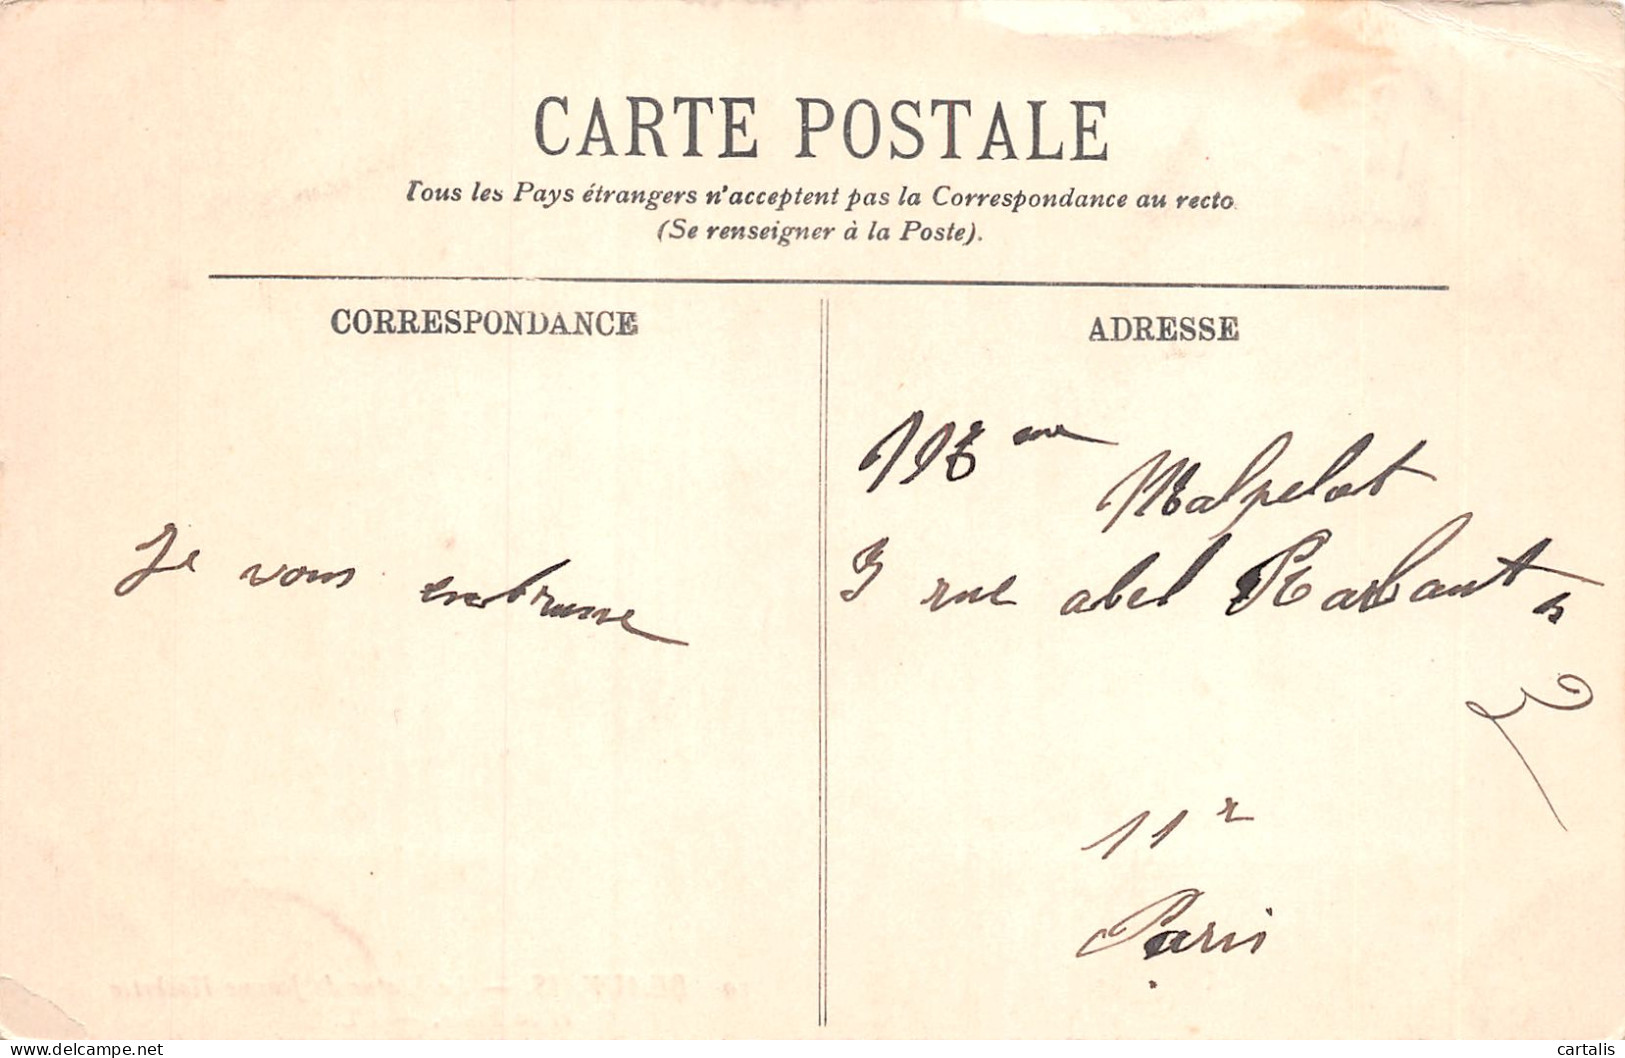 CARTE POSTALE
Tous les Pays étrangers n'acceptent pas la Correspondance au recto
(Se renseigner à la Poste).
CORRESPONDANCE
ADRESSE
Je vous embrasse
Mme
Malpelat
3 rue abel Rabant
11r
Paris
https://www.delcampe.net
cartalis